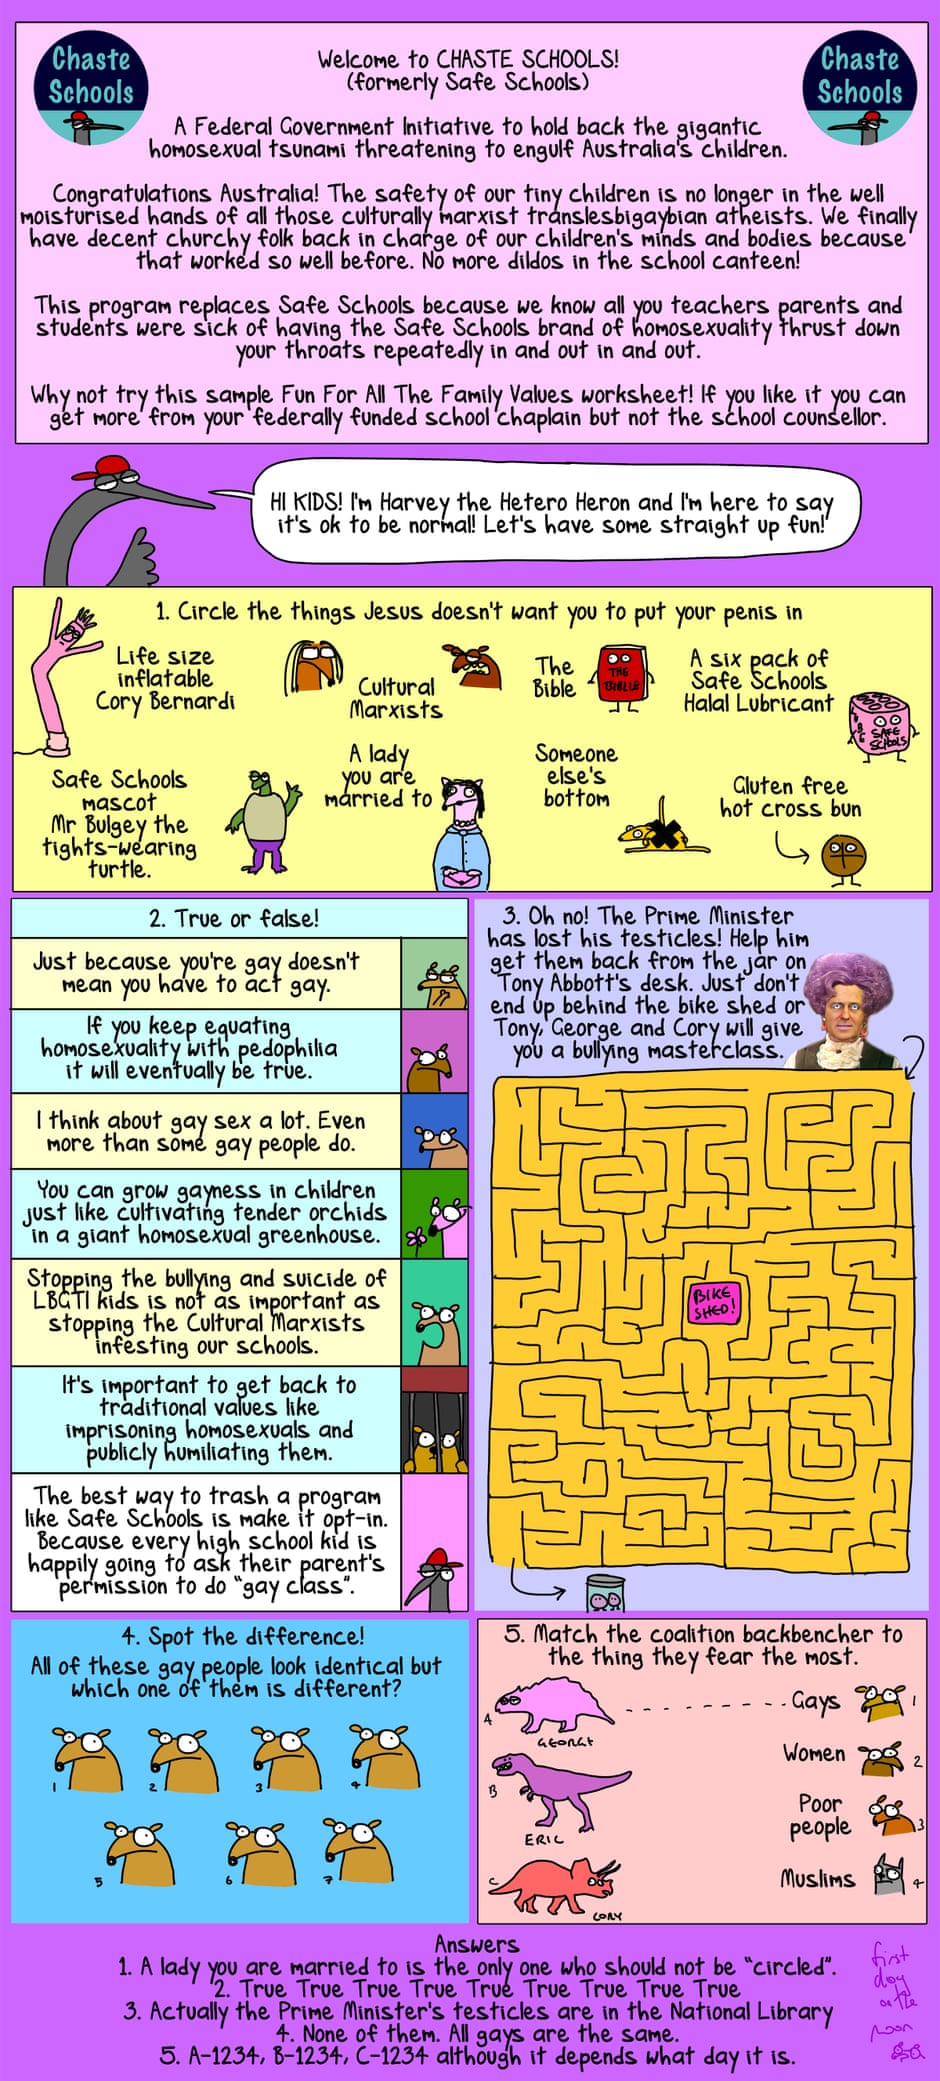 Chaste
Schools
Chaste
Schools
Welcome to CHASTE SCHOOLS!
(formerly Safe Schools)
A Federal Government Initiative to hold back the gigantic
homosexual tsunami threatening to engulf Australia's children.
Congratulations Australia! The safety of our tiny children is no longer in the well
moisturised hands of all those culturally marxist translesbigaybian atheists. We finally
have decent churchy folk back in charge of our children's minds and bodies because
that worked so well before. No more dildos in the school canteen!
This program replaces Safe Schools because we know all you teachers parents and
students were sick of having the Safe Schools brand of homosexuality thrust down
your throats repeatedly in and out in and out.
Why not try this sample Fun For All The Family Values worksheet! If you like it you can
get more from your federally funded school chaplain but not the school counsellor.
HI KIDS! I'm Harvey the Hetero Heron and I'm here to say
it's ok to be normal! Let's have some straight up fun!
1. Circle the things Jesus doesn't want you to put your penis in
Life size
inflatable
Cory Bernardi
Cultural
Marxists
The
Bible
THE
BIBLE
A six pack of
Safe Schools
Halal Lubricant
SAFE
SCHOOLS
Safe Schools
mascot
Mr Bulgey the
tights-wearing
turtle.
A lady
you are
married to
Someone
else's
bottom
Gluten free
hot cross bun
2. True or false!
Just because you're gay doesn't
mean you have to act gay.
If you keep equating
homosexuality with pedophilia
it will eventually be true.
I think about gay sex a lot. Even
more than some gay people do.
You can grow gayness in children
just like cultivating tender orchids
in a giant homosexual greenhouse.
Stopping the bullying and suicide of
LBGTI kids is not as important as
stopping the Cultural Marxists
infesting our schools.
It's important to get back to
traditional values like
imprisoning homosexuals and
publicly humiliating them.
The best way to trash a program
like Safe Schools is make it opt-in.
Because every high school kid is
happily going to ask their parent's
permission to do "gay class".
3. Oh no! The Prime Minister
has lost his testicles! Help him
get them back from the jar on
Tony Abbott's desk. Just don't
end up behind the bike shed or
Tony, George and Cory will give
you a bullying masterclass.
BIKE
SHED!
4. Spot the difference!
All of these gay people look identical but
which one of them is different?
1
2
3
4
5
6
7
5. Match the coalition backbencher to
the thing they fear the most.
A
GEORGE
Gays
1
B
ERIC
Women
2
Poor
people
3
C
CORY
Muslims
4
Answers
1. A lady you are married to is the only one who should not be "circled".
2. True True True True True True True True True
3. Actually the Prime Minister's testicles are in the National Library
4. None of them. All gays are the same.
5. A-1234, B-1234, C-1234 although it depends what day it is.
first
dog
on the
moon